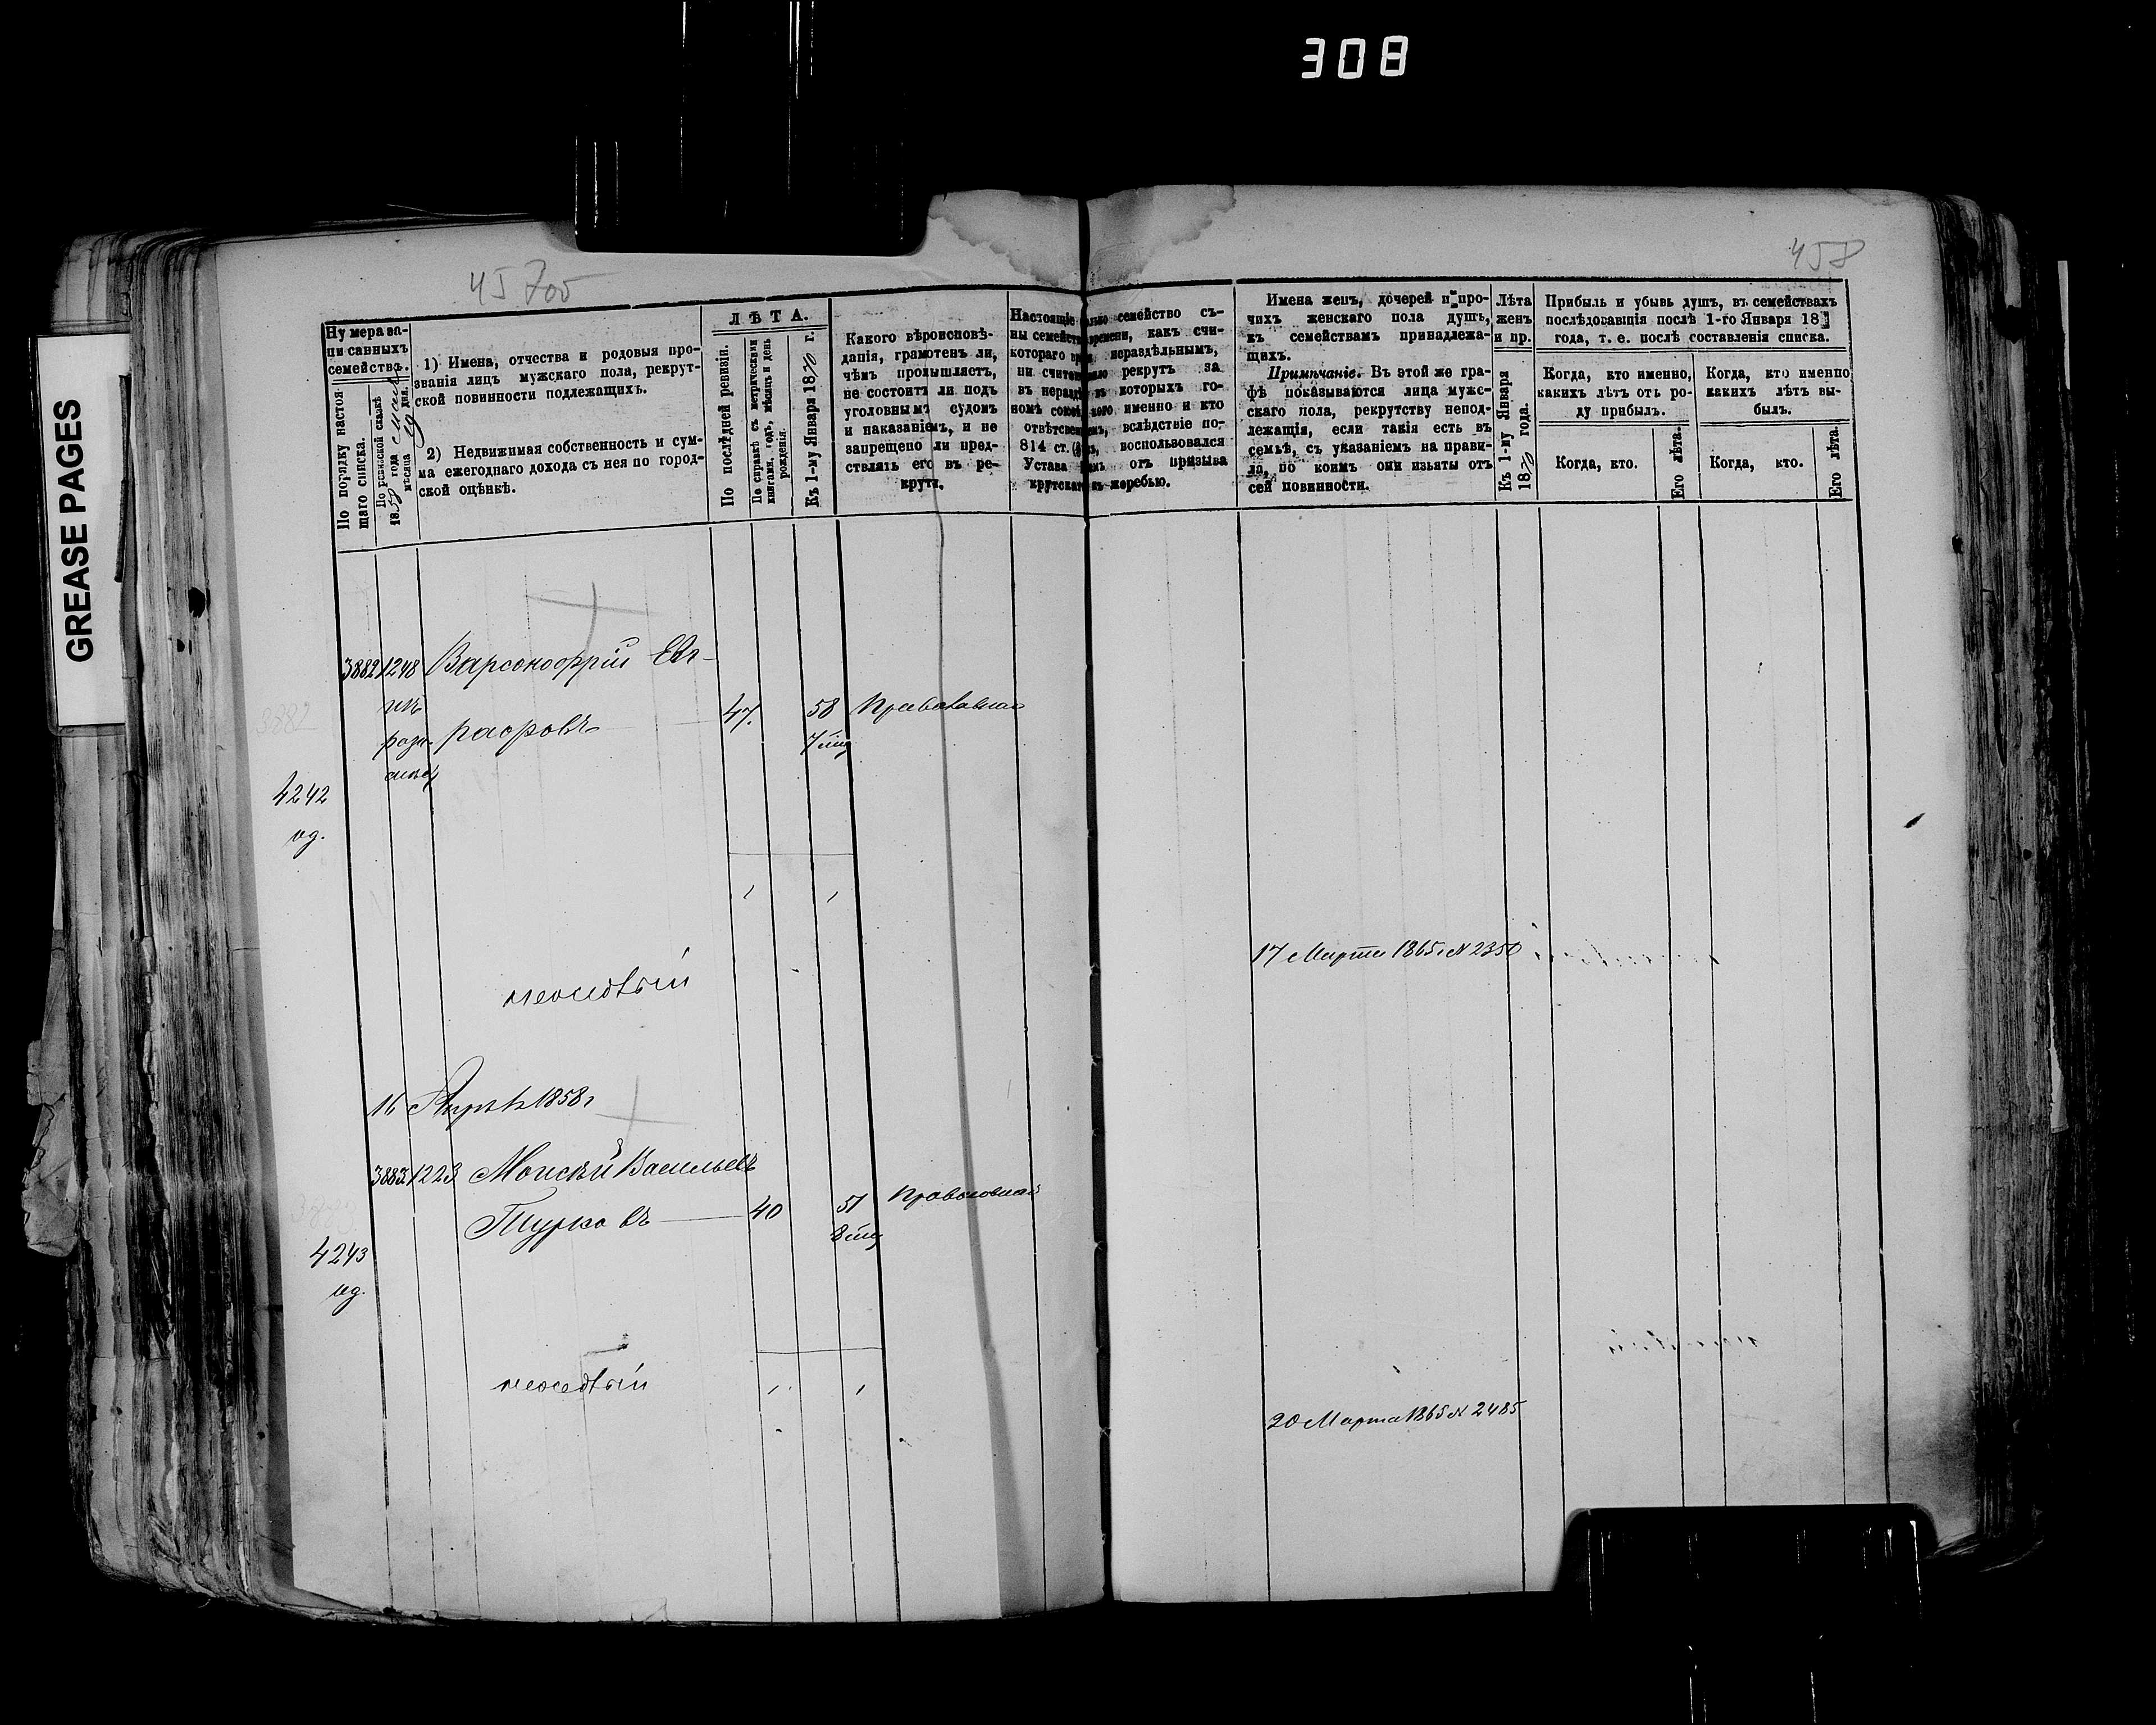 308
GREASE PAGES
457об
458
Нумера за-
писанныхъ
семействъ.
По порядку настоя-
щаго списка.
По ревизской сказкѣ
1858 года
мѣсяца дня.
1) Имена, отчества и родовыя про-
званія лицъ мужскаго пола, рекрут-
ской повинности подлежащихъ.
2) Недвижимая собственность и сум-
ма ежегоднаго дохода съ нея по город-
ской оцѣнкѣ.
ЛѢТА.
По послѣдней ревизіи.
По справкѣ съ метрическими
книгами, годъ, мѣсяцъ и день
рожденія.
Къ 1-му Января 1870 г.
Какого вѣроисповѣ-
данія, грамотенъ ли,
чѣмъ промышляетъ,
не состоитъ ли подъ
уголовнымъ судомъ
и наказаніемъ, и не
запрещено ли пред-
ствлять его въ ре-
круты.
Настоящіе
ны семейств
котораго
ни считая
въ неразд
номъ
отвѣтствен
814 ст.
Устава
крутскаго
семейство съ-
времени, какъ счи-
нераздѣльнымъ,
рекрутъ за
въ которыхъ го-
именно и кто
вслѣдствіе по-
воспользовался
отъ призыва
къ жеребью.
Имена женъ, дочерей и про-
чихъ женскаго пола душъ,
къ семействамъ принадлежа-
щихъ.
Примѣчаніе. Въ этой же гра-
фѣ показываются лица муж-
скаго пола, рекрутству непод-
лежащія, если такія есть въ
семьѣ, съ указаніемъ на прави-
ла, по коимъ они изъяты отъ
сей повинности.
Лѣта
женъ
и пр.
Къ 1-му Января
1870 года.
Прибыль и убыль душъ, въ семействахъ
послѣдовавшія послѣ 1-го Января 18
года, т. е. послѣ составленія списка.
Когда, кто именно,
какихъ лѣтъ отъ ро-
ду прибылъ.
Когда, кто именно
какихъ лѣтъ вы-
былъ.
Когда, кто.
Его лѣта.
Когда, кто.
Его лѣта.
3882 1248 Варсонофій Ев-
графовъ 47. 58 Православнаго
3882
4242
од.
1 1
17 Марта 1865 г № 2350
неосѣдлый
16 Апрѣля 1858 г
3883 1223 Моисей Васильевъ
Турковъ 40 51 Православнаго
3883
4243
од.
неосѣдлый 1 1
20 Марта 1865 № 2485